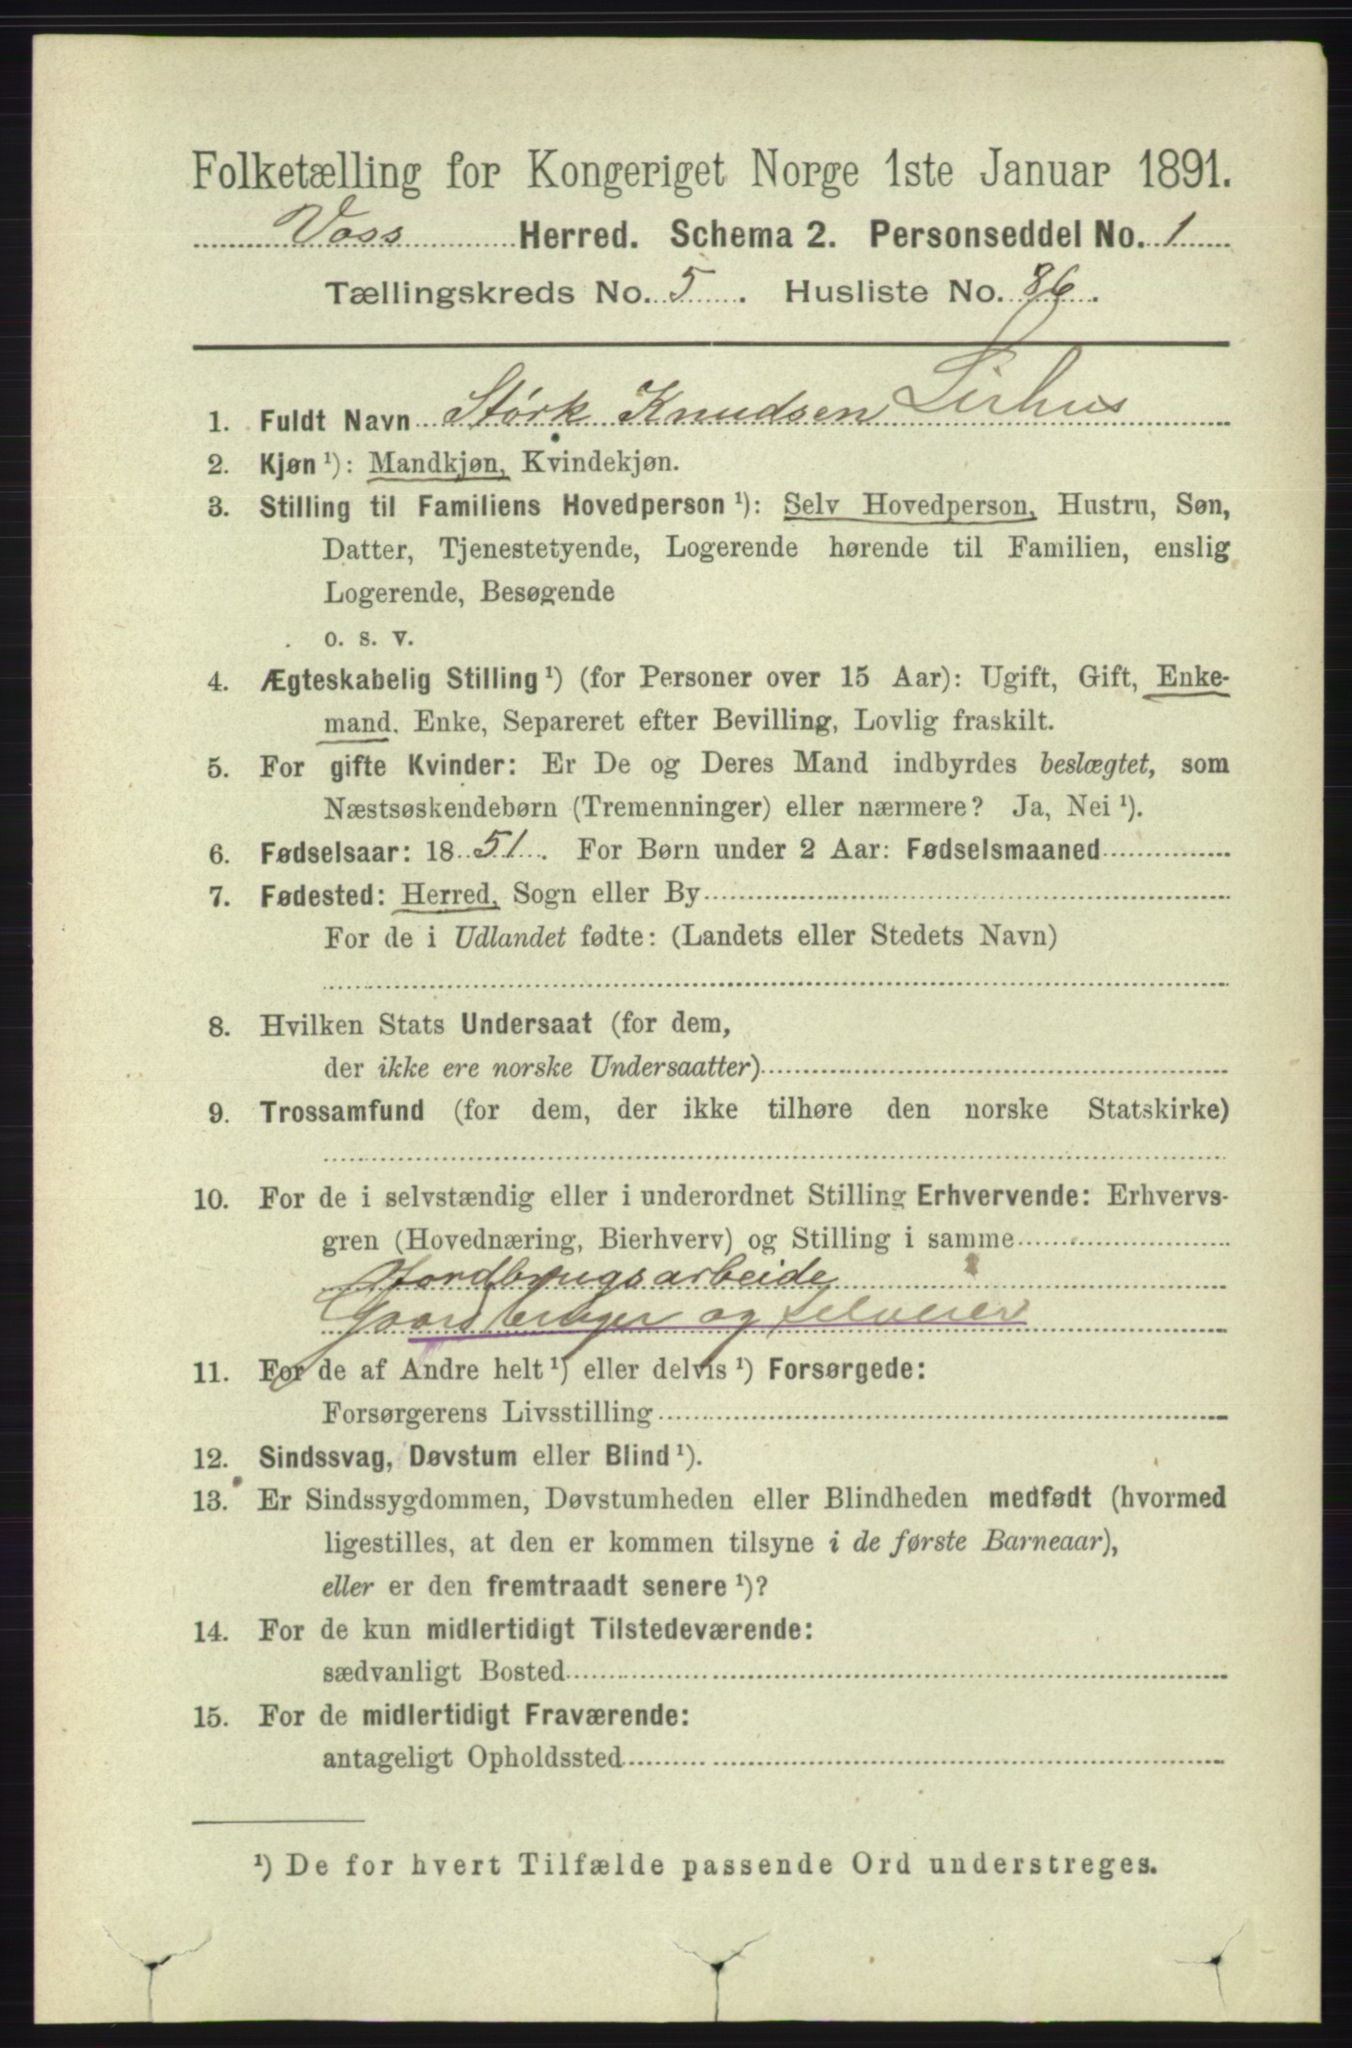 Folketælling for Kongeriget Norge 1ste Januar 1891.
Voss Herred. Schema 2. Personseddel No. 1
Tællingskreds No. 5. Husliste No. 86.
1. Fuldt Navn Størk Knudsen Lirhus
2. Kjøn ¹): Mandkjøn, Kvindekjøn.
3. Stilling til Familiens Hovedperson ¹): Selv Hovedperson, Hustru, Søn,
Datter, Tjenestetyende, Logerende hørende til Familien, enslig
Logerende, Besøgende
o. s. v.
4. Ægteskabelig Stilling ¹) (for Personer over 15 Aar): Ugift, Gift, Enke-
mand, Enke, Separeret efter Bevilling, Lovlig fraskilt.
5. For gifte Kvinder: Er De og Deres Mand indbyrdes beslægtet, som
Næstsøskendebørn (Tremenninger) eller nærmere? Ja, Nei ¹).
6. Fødselsaar: 1851. For Børn under 2 Aar: Fødselsmaaned
7. Fødested: Herred, Sogn eller By
For de i Udlandet fødte: (Landets eller Stedets Navn)
8. Hvilken Stats Undersaat (for dem,
der ikke ere norske Undersaatter)
9. Trossamfund (for dem, der ikke tilhøre den norske Statskirke)
10. For de i selvstændig eller i underordnet Stilling Erhvervende: Erhvervs-
gren (Hovednæring, Bierhverv) og Stilling i samme
Jordbrugsarbeide
Gaardbruger og Selveier
11. For de af Andre helt ¹) eller delvis ¹) Forsørgede:
Forsørgerens Livsstilling
12. Sindssvag, Døvstum eller Blind ¹).
13. Er Sindssygdommen, Døvstumheden eller Blindheden medfødt (hvormed
ligestilles, at den er kommen tilsyne i de første Barneaar),
eller er den fremtraadt senere ¹)?
14. For de kun midlertidigt Tilstedeværende:
sædvanligt Bosted
15. For de midlertidigt Fraværende:
antageligt Opholdssted
¹) De for hvert Tilfælde passende Ord understreges.